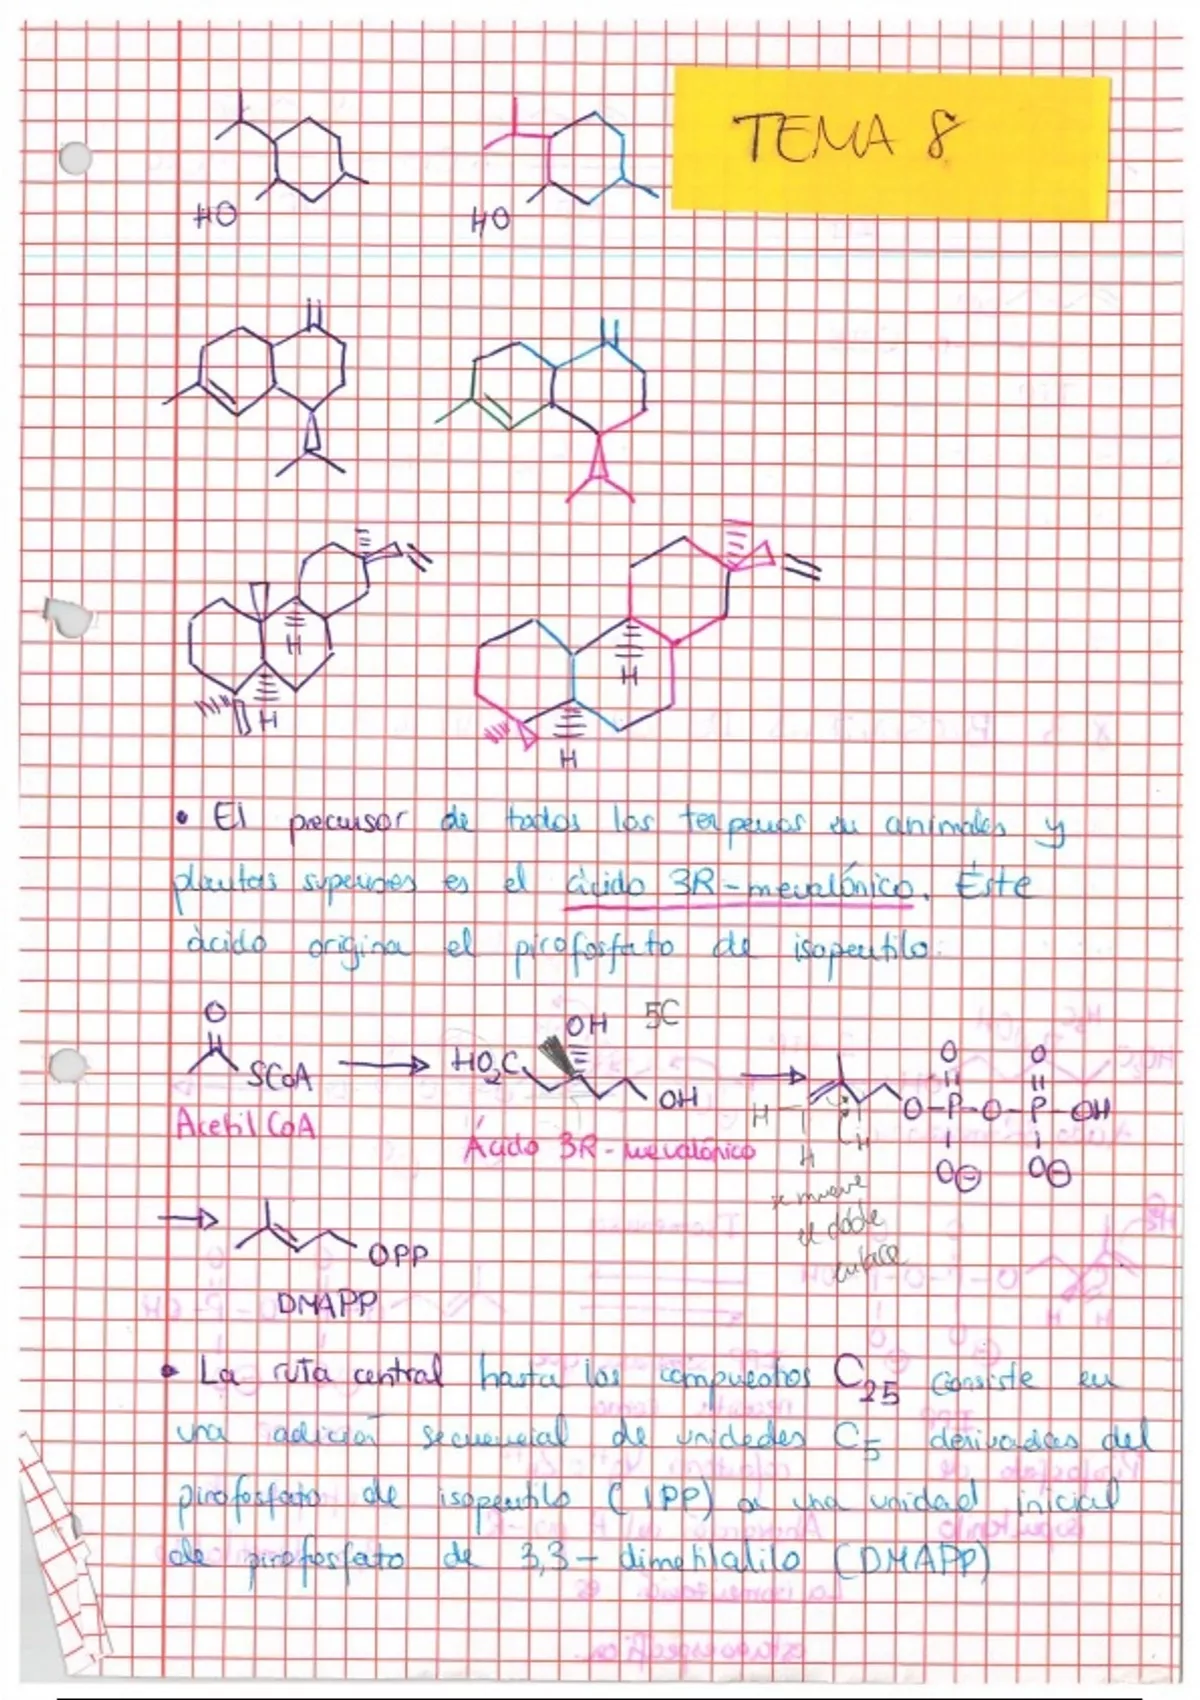 TEMA 8
HO
HO
H
H
H
H
• El precusor de todos los terpenos en animales y
plantas superiores es el ácido 3R-mevalónico. Éste
ácido origina el pirofosfato de isopentilo.
O
SCoA
Acetil CoA
HO₂C
OH
5C
OH
Ácido 3R-mevalónico
O O
O-P-O-P-OH
O⊖ O⊖
H
H
H
se mueve
el doble
enlace
OPP
DMAPP
• La ruta central hasta los compuestos C₂₅ consiste en
una adición secuencial de unidedes C₅ derivadas del
pirofosfato de isopentilo (IPP) a una unidad inicial
de pirofosfato de 3,3-dimetilalilo (DMAPP)